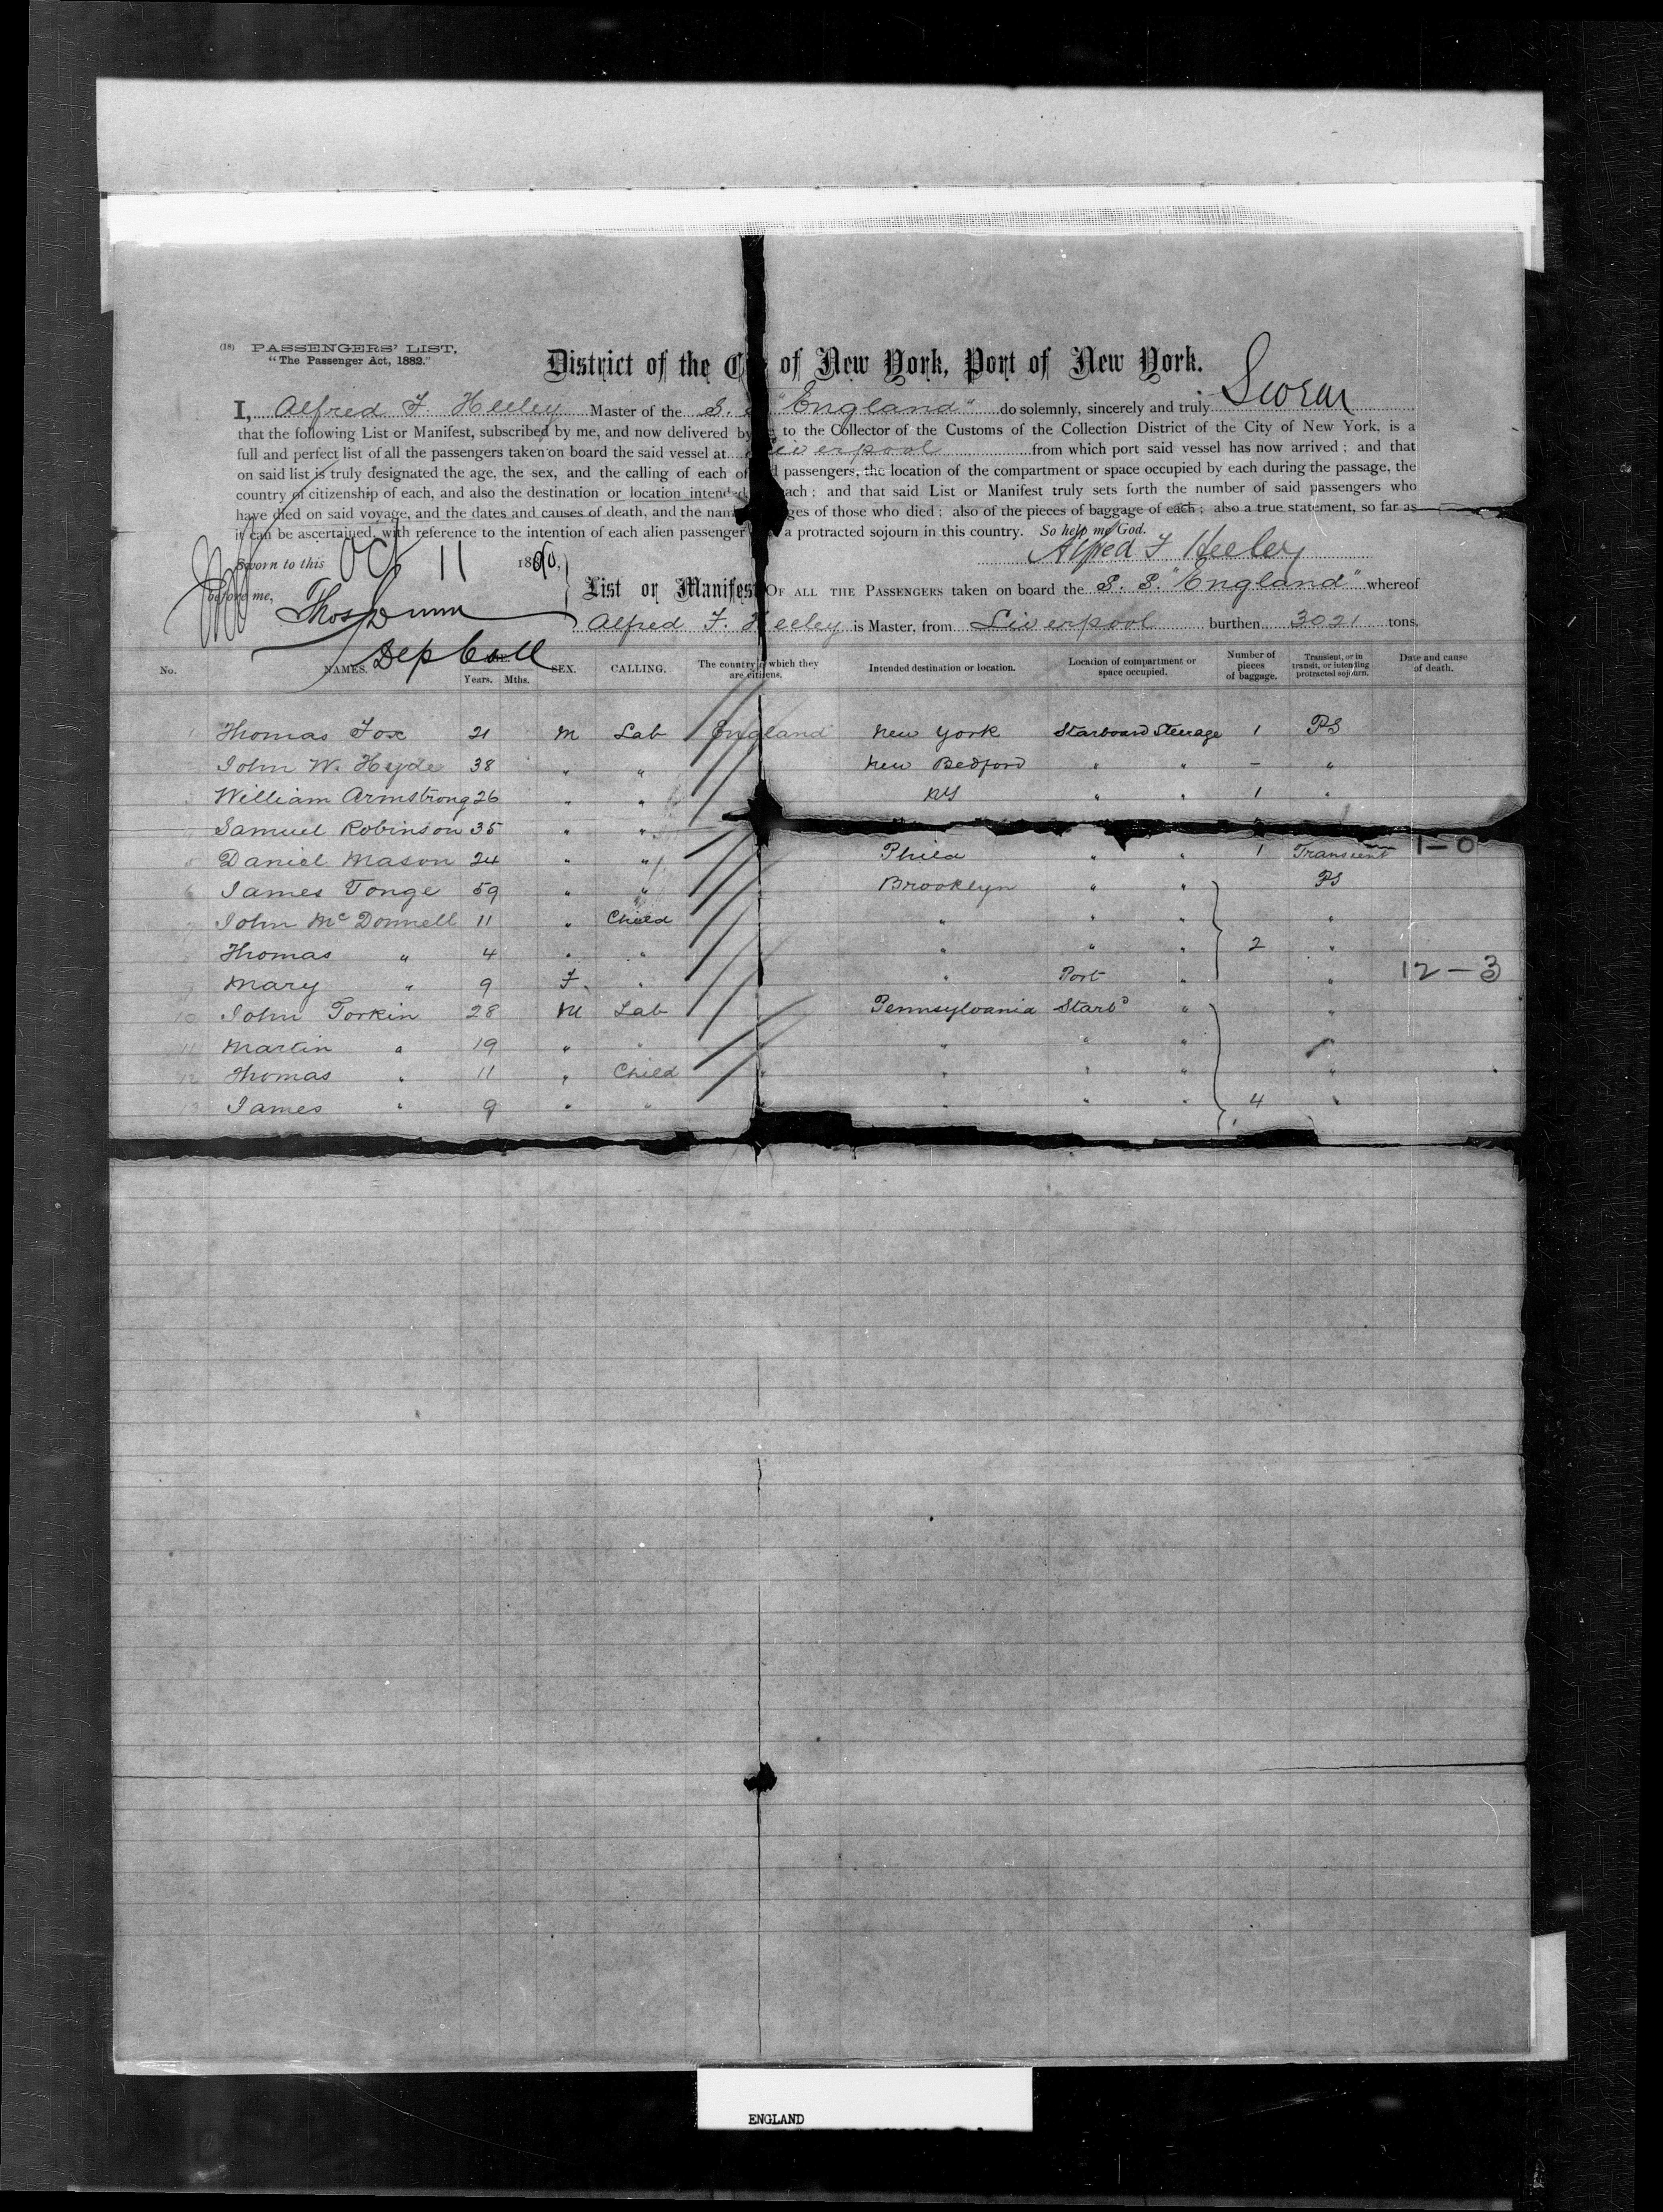 (18) PASSENGERS' LIST,
"The Passenger Act, 1882."
District of the C of New York, Port of New York.
I, Alfred F. Heeley Master of the S. "England" do solemnly, sincerely and truly Swear
that the following List or Manifest, subscribed by me, and now delivered by to the Collector of the Customs of the Collection District of the City of New York, is a
full and perfect list of all the passengers taken on board the said vessel at Liverpool from which port said vessel has now arrived; and that
on said list is truly designated the age, the sex, and the calling of each of passengers, the location of the compartment or space occupied by each during the passage, the
country of citizenship of each, and also the destination or location intended each; and that said List or Manifest truly sets forth the number of said passengers who
have died on said voyage, and the dates and causes of death, and the nam ges of those who died; also of the pieces of baggage of each; also a true statement, so far as
it can be ascertained, with reference to the intention of each alien passenger a protracted sojourn in this country. So help me God.
Alfred F Heeley
Sworn to this Oct 11 1890,
before me,
Thos Dunn
Dep Coll
List or Manifest OF ALL THE PASSENGERS taken on board the S. S. "England" whereof
Alfred F. Heeley is Master, from Liverpool burthen 3021 tons.
No. NAMES. Years. Mths. SEX. CALLING. The country of which they are citizens. Intended destination or location. Location of compartment or space occupied. Number of pieces of baggage. Transient, or in transit, or intending protracted sojourn. Date and cause of death.
1 Thomas Fox 21 M Lab England New York Starboard Steerage 1 PS
John W. Hyde 38 " " New Bedford " " – "
William Armstrong 26 " " NY " " 1 "
Samuel Robinson 35 " "
5 Daniel Mason 24 " " Phila " " 1 Transient 1–0
6 James Tonge 59 " " Brooklyn " " PS
7 John McDonnell 11 " Child " " " "
Thomas " 4 " " " " " 2 "
9 Mary " 9 F. " " Port " " 12–3
10 John Torkin 28 M Lab Pennsylvania Starbd " "
11 Martin " 19 " " " " " " "
12 Thomas " 11 " Child " " " " "
13 James " 9 " " " " " " 4 "
ENGLAND